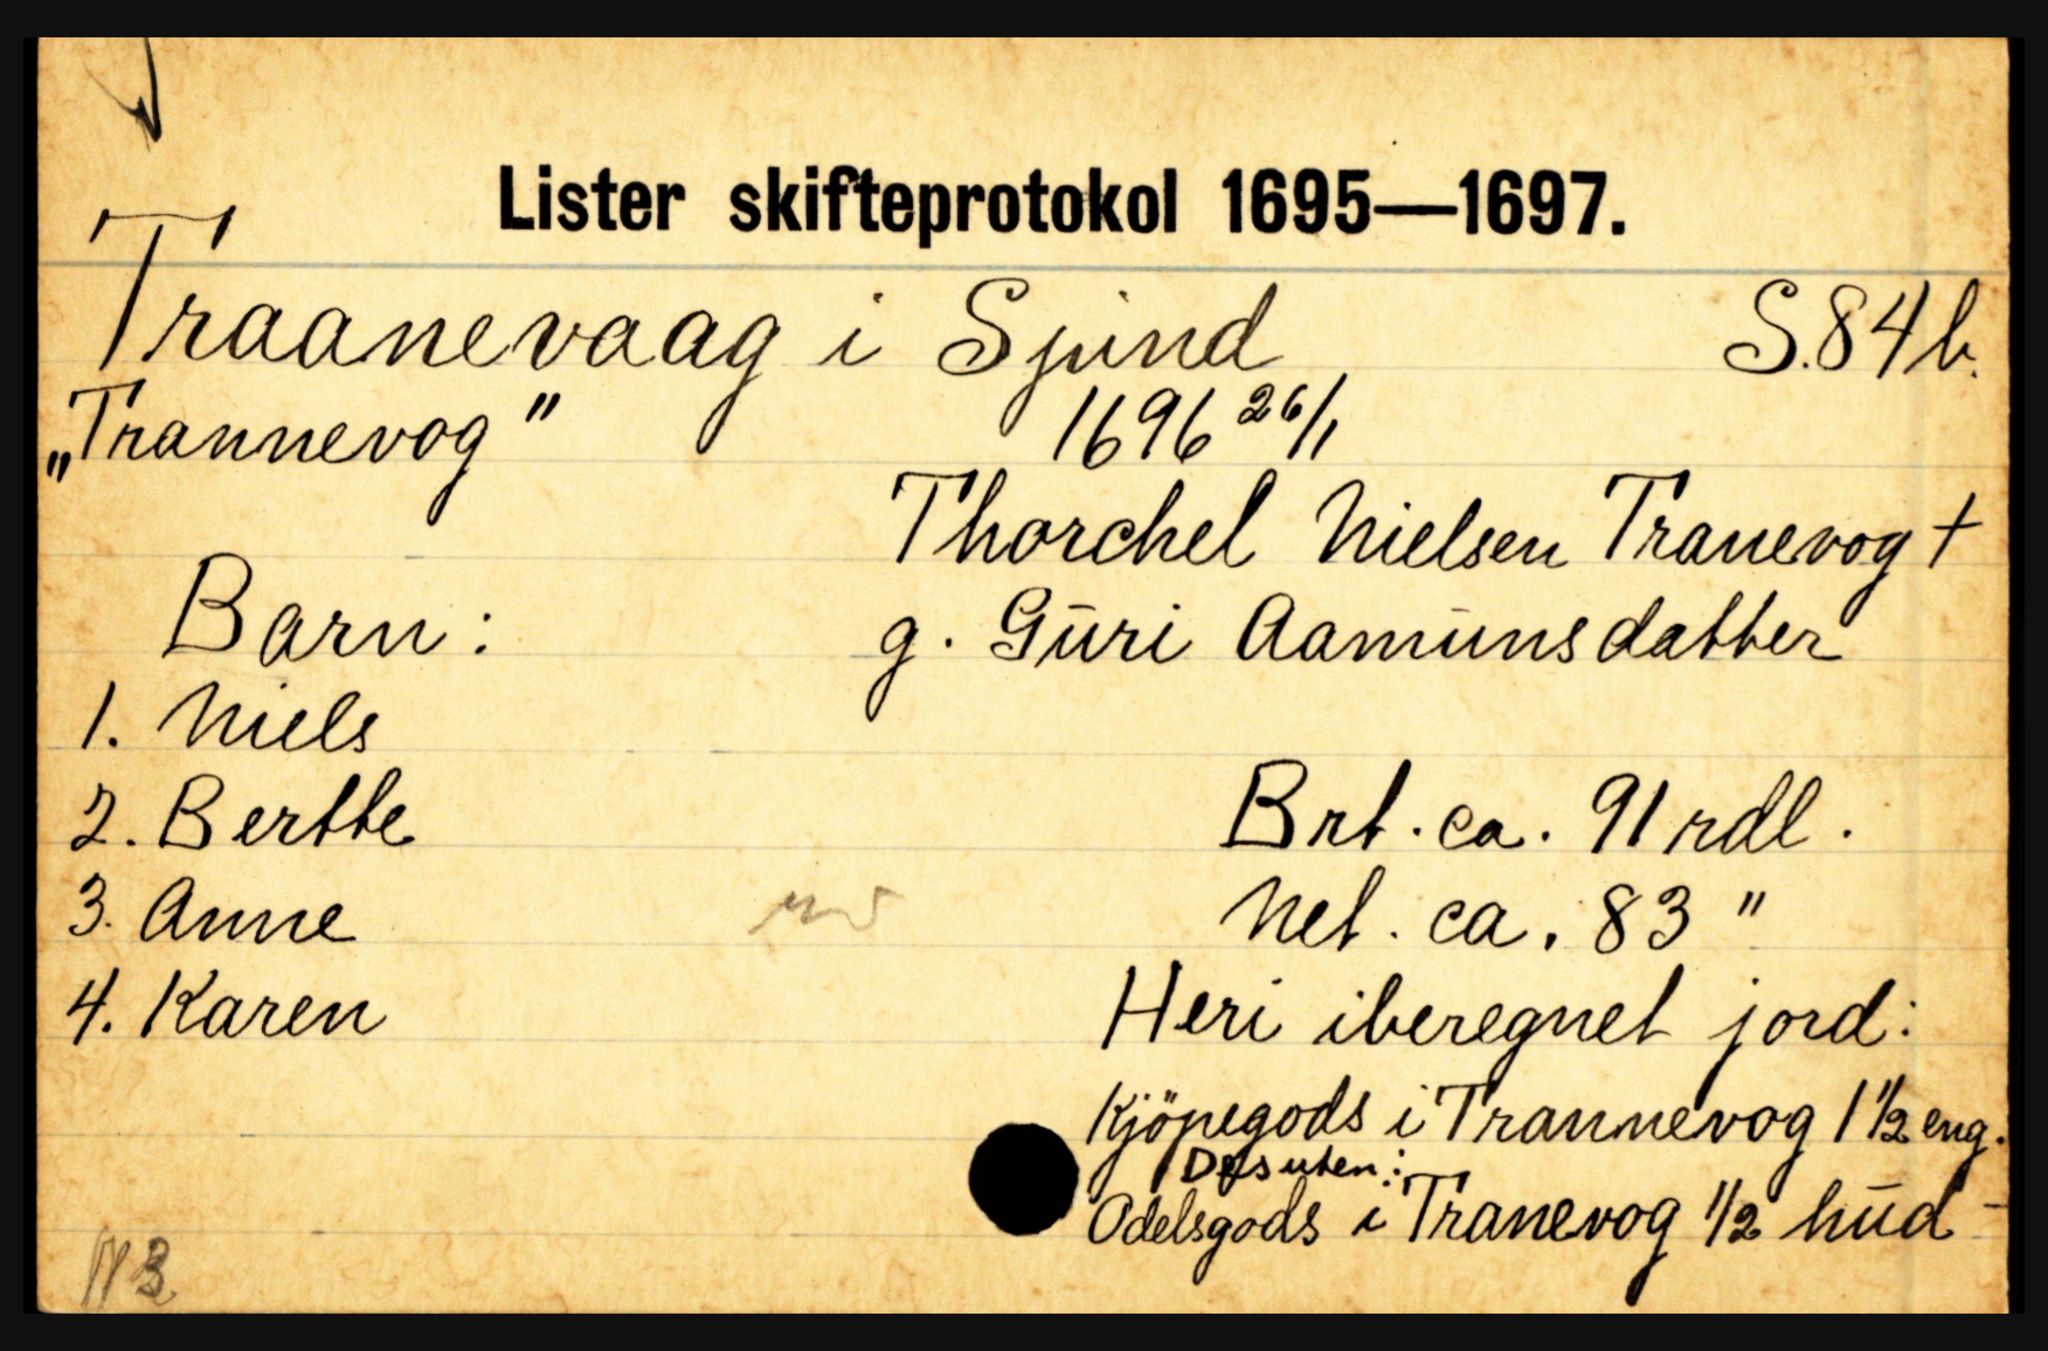 Lister skifteprotokol 1695—1697.
Traanevaag i Spind S. 84 b.
„Trannevog" 1696 26/1
Thorchel Nielsen Tranevog +
Barn: g. Gūri Aamūnsdatter
1. Niels
2. Berthe Brt. ca. 91 rdl.
3. Anne Net. ca. 83 "
4. Karen Heri iberegnet jord:
Kjöpegods i Trannevog 1 1/2 eng.
Desuten:
Odelsgods i Tranevog 1/2 hūd